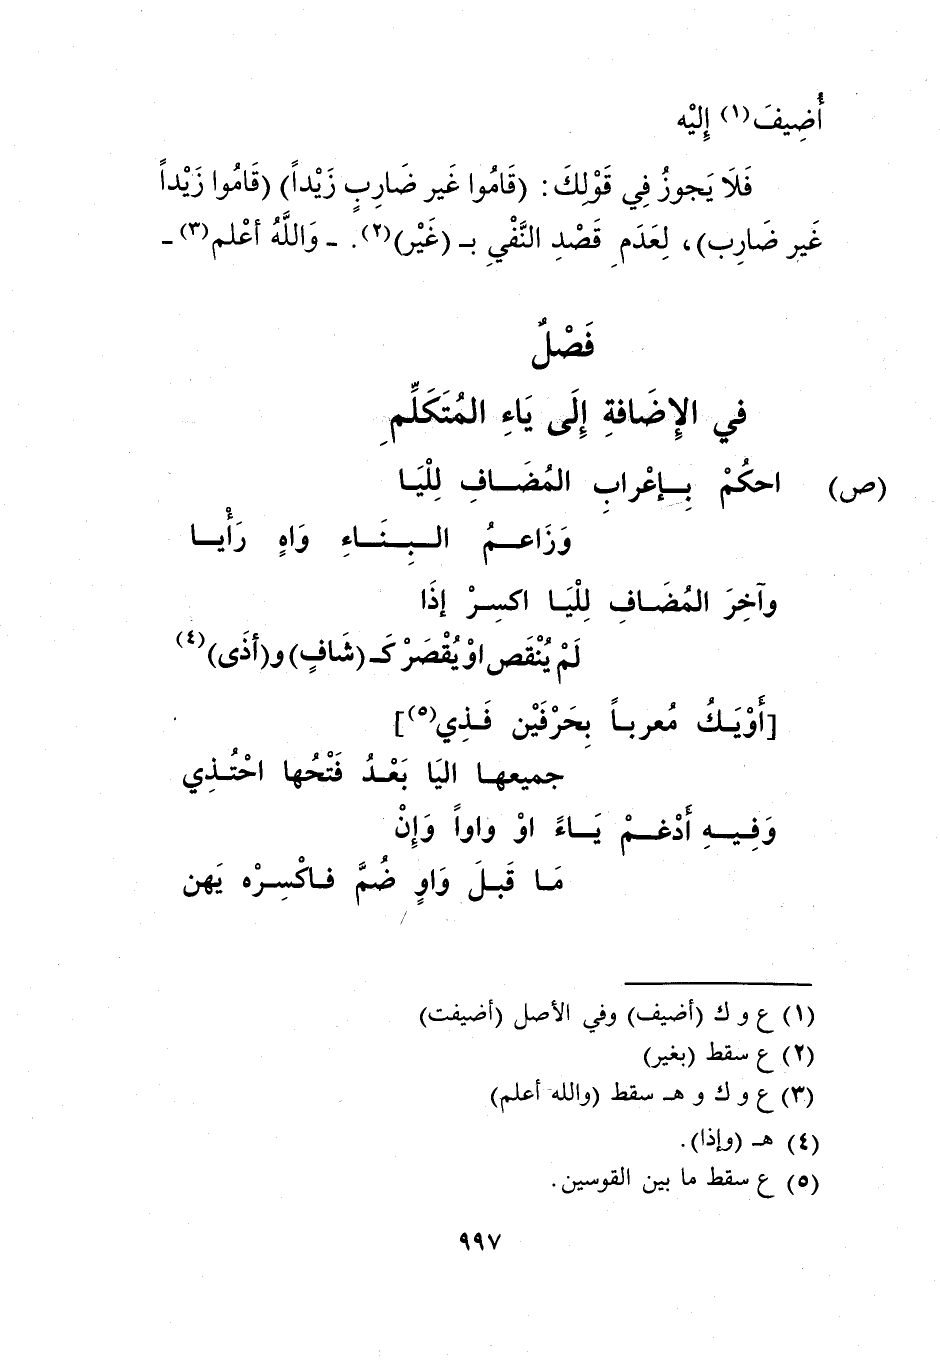 أُضِيفَ(١) إِليْه
فَلَا يَجوزُ فِي قَوْلِكَ: (قَامُوا غَير ضَارِبٍ زَيْداً) (قَامُوا زَيْداً
غَير ضَارِب)، لِعَدَمِ قَصْدِ النَّفْيِ بـ (غَيْر)(٢). ـ وَاللَّهُ أعْلم(٣) ـ
فَصْلٌ
في الإِضَافةِ إِلَى يَاءِ المُتَكَلِّمِ
(ص) احكُمْ بِإعْرابِ المُضَافِ لِلْيَا
وَزَاعمُ البِنَاءِ وَاهٍ رَأْيا
وآخِرَ المُضَافِ لِلْيَا اكسِرْ إذَا
لَمْ يُنْقَص اوْ يُقْصَرْ كَـ (شَافٍ) و(أذَى)(٤)
[أَوْيَكُ مُعرباً بِحَرْفَيْن فَذِي(٥)]
جميعها اليَا بَعْدُ فَتْحُها احْتُذِي
وَفِيهِ أَدْغمْ يَاءً اوْ واواً وَإِنْ
مَا قَبلَ وَاوٍ ضُمَّ فاكْسِرْه يَهن
(١) ع و ك (أضيف) وفي الأصل (أضيفت)
(٢) ع سقط (بغير)
(٣) ع و ك و هـ سقط (والله أعلم)
(٤) هـ (وإذا).
(٥) ع سقط ما بين القوسين.
٩٩٧